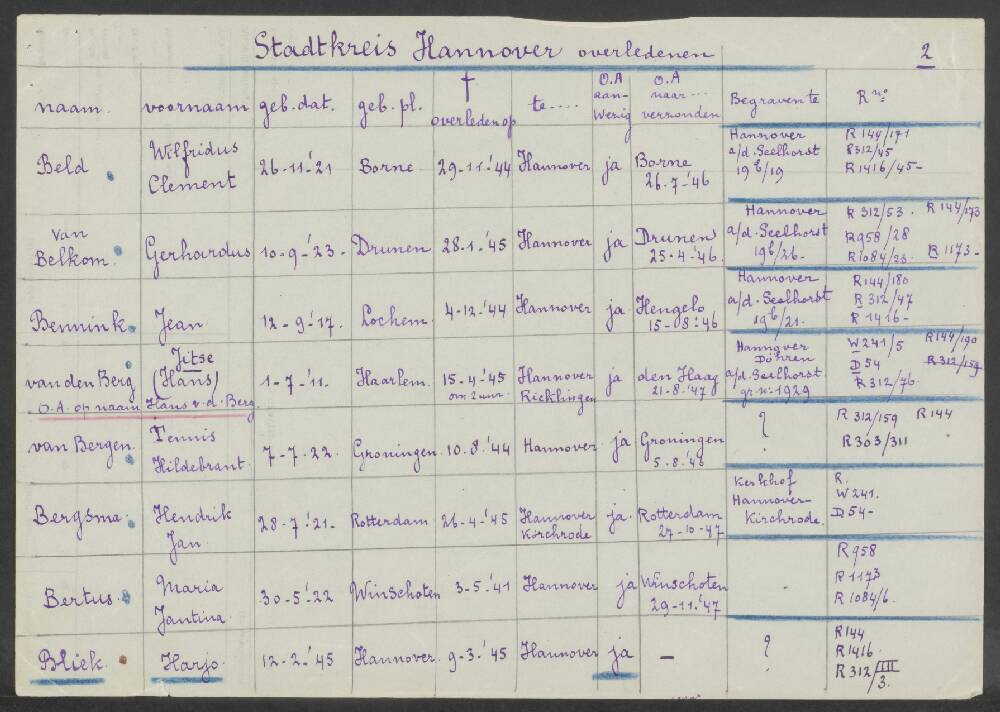 Stadtkreis Hannover overledenen 2
naam. voornaam geb. dat. geb. pl. † overleden op te .... O.A aan- wezig O.A naar ... verzonden Begraven te R no:
Beld Wilfridus Clement 26-11-'21 Borne 29-11-'44 Hannover ja Borne 26.7-'46 Hannover a/d. Seelhorst 19b/19 R144/171 R312/45 R1416/45-
van Belkom. Gerhardus 10-9-'23. Drunen 28-1-'45 Hannover ja Drunen 25-4-'46. Hannover a/d. Seelhorst 19b/26. R 312/53. R144/173 R958/28 R1084/23. R.1173-
Bennink. Jean 12-9-'17. Lochem. 4-12-'44 Hannover ja Hengelo 15-08-'46 Hannover a/d. Seelhorst 19b/21. R144/180 R312/47 R1416-
van den Berg Jitse (Hans) 1-7-'11. Haarlem. 15-4-'45 om 2 uur. Hannover Ricklingen ja den Haag 21-8-'47 Hannover Döhren a/d. Seelhorst gr. n. 1929 W241/5 R144/190 D54 R312/159 R312/76.
O.A. op naam Hans v. d. Berg
van Bergen. Tennis Hildebrant. 7-7-22. Groningen. 10.8.'44 Hannover ja Groningen 5-8-'46 ? R 312/159 R144 R303/311
Bergsma. Hendrik Jan 28-7-'21. Rotterdam 26-4-'45 Hannover Kirchrode ja. Rotterdam 27-10-47 Kerkhof Hannover- Kirchrode. R. W241. D54-
Bertus. Maria Jantina. 30-5-'22 Winschoten 3-5-'41 Hannover ja Winschoten 29-11-'47 R958 R1173 R1084/6.
Bliek. Harjo. 12-2-'45 Hannover. 9-3-'45 Hannover ja — ? R144 R1416. R312/III 3.